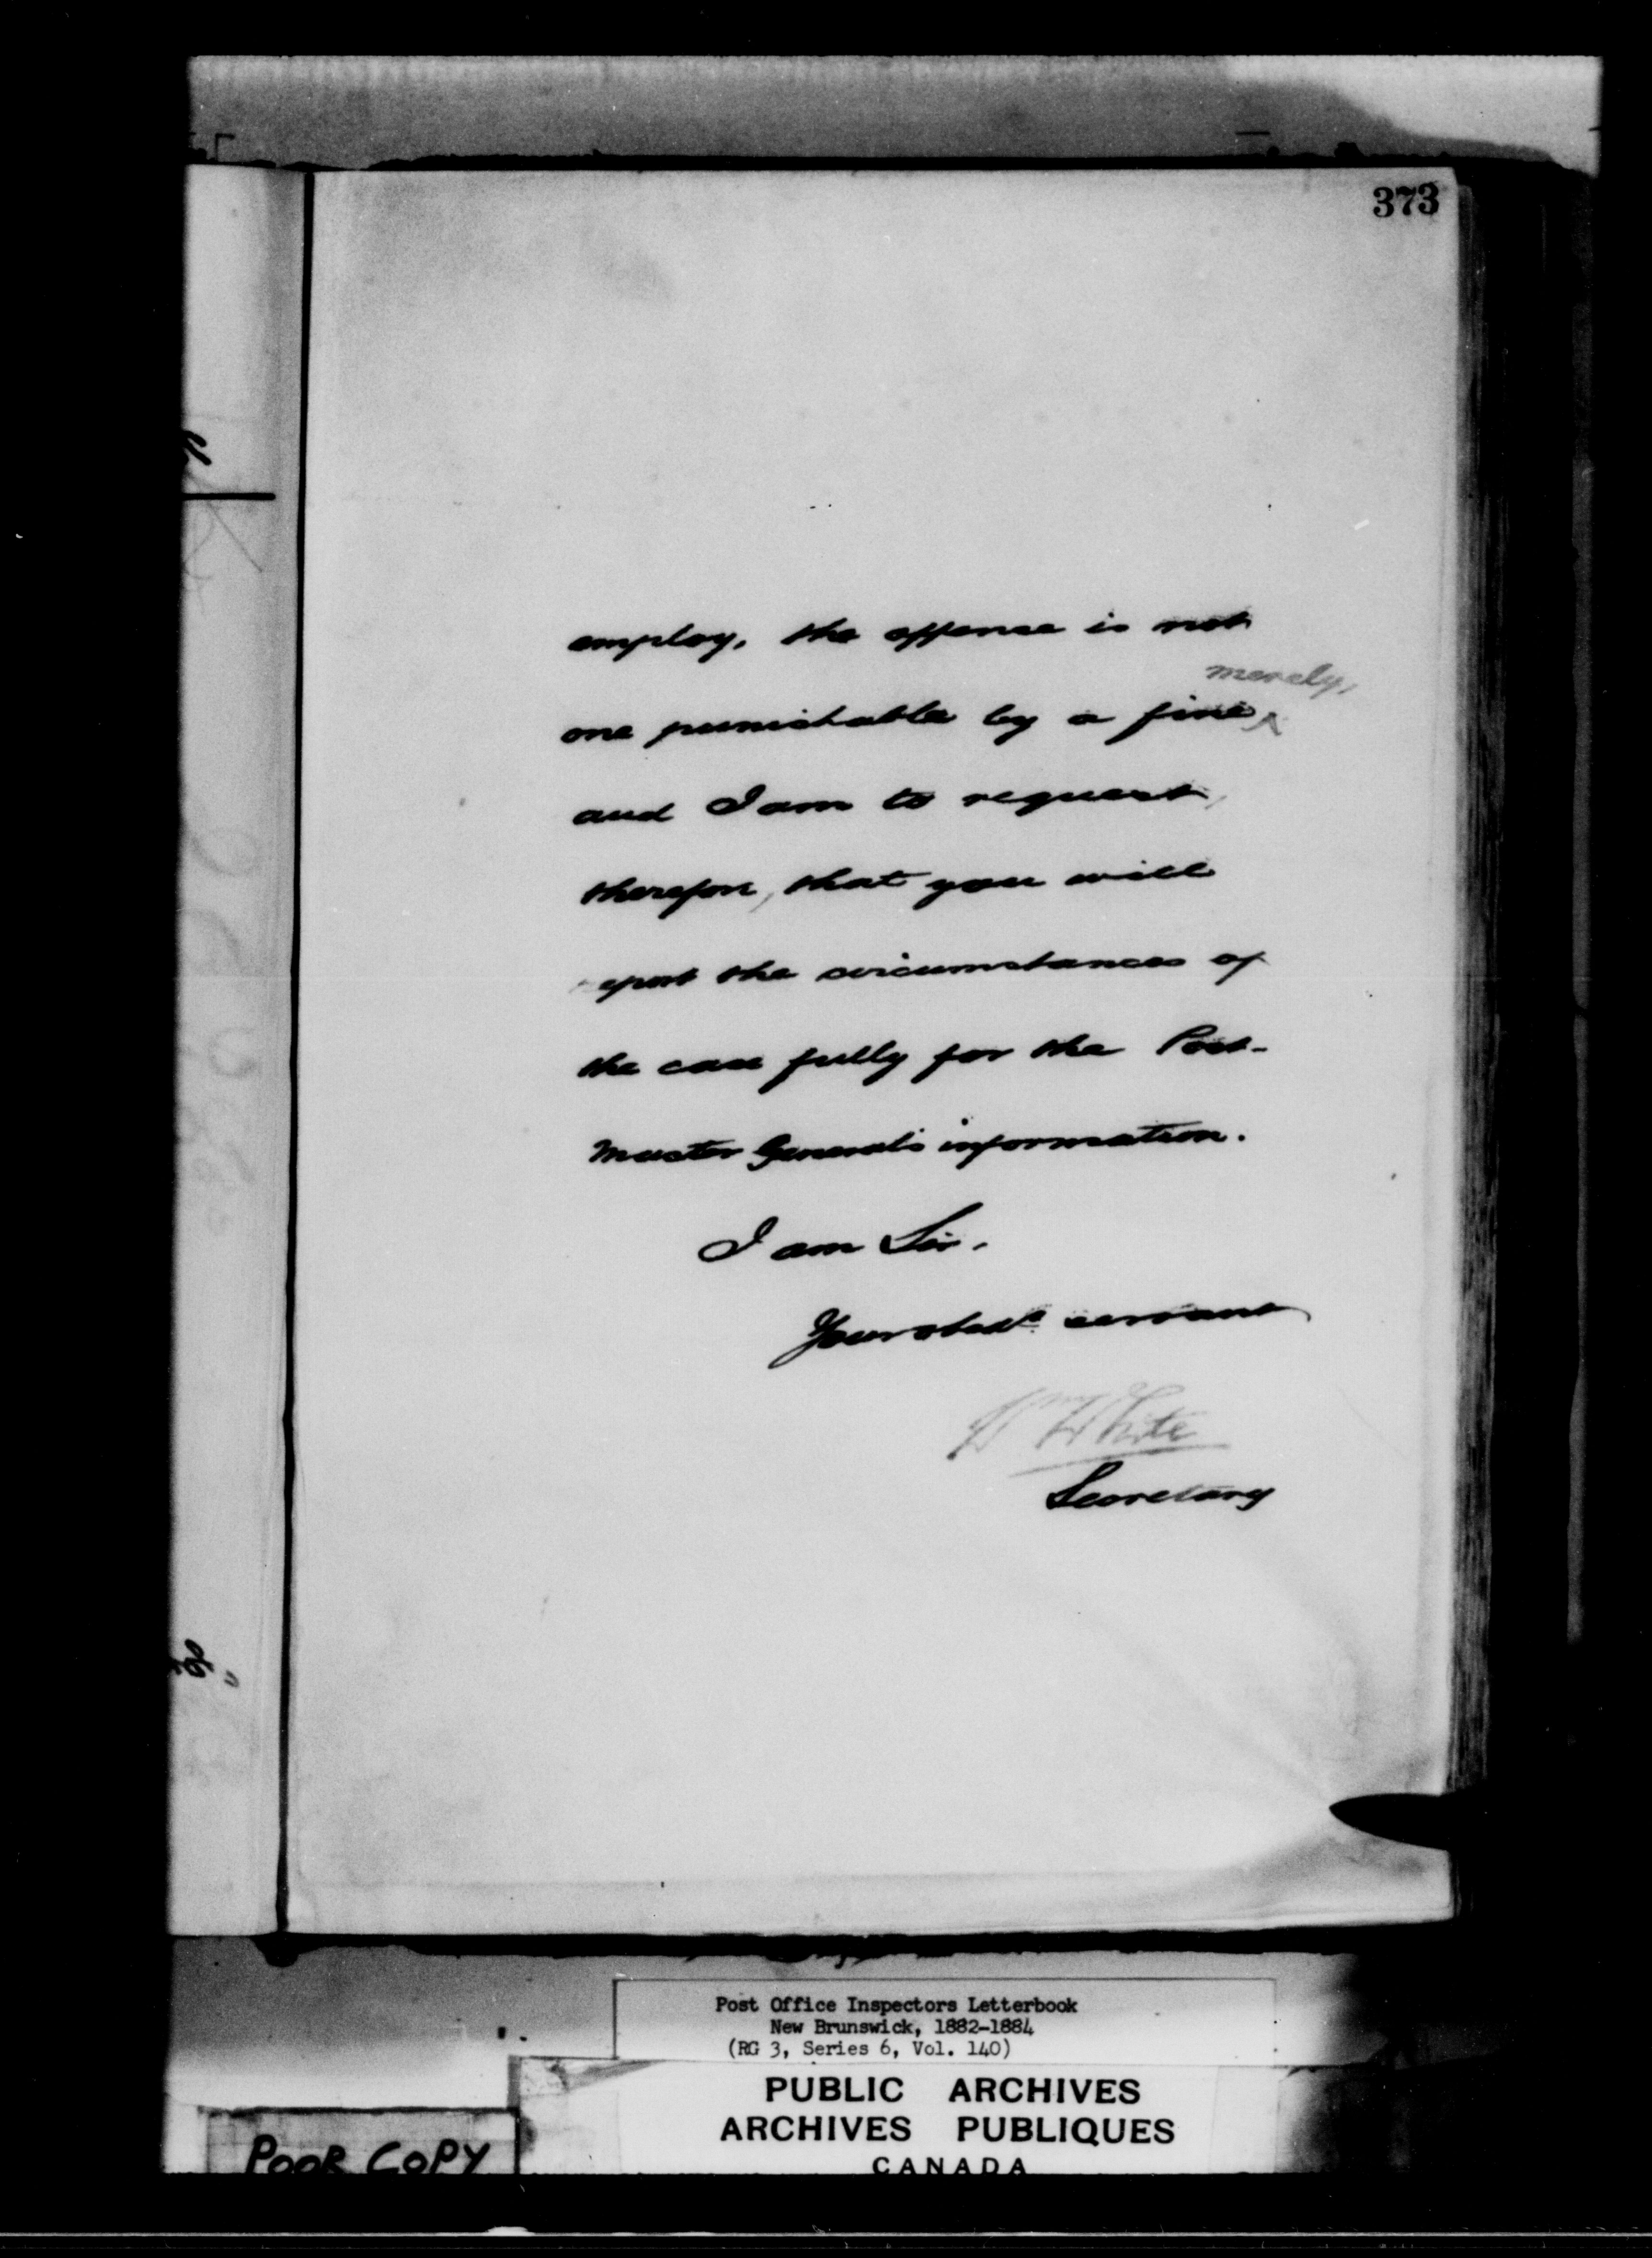 373
employ, the offense is not
merely,
one punishable by a fine ^
and I am to request,
therefore, that you will
report the circumstances of
the case fully for the Post-
Master General's information.
I am Sir,
Your obedt servant
Wm White
Secretary
Post Office Inspectors Letterbook
New Brunswick, 1882-1884
(RG 3, Series 6, Vol. 140)
PUBLIC ARCHIVES
ARCHIVES PUBLIQUES
CANADA
POOR COPY